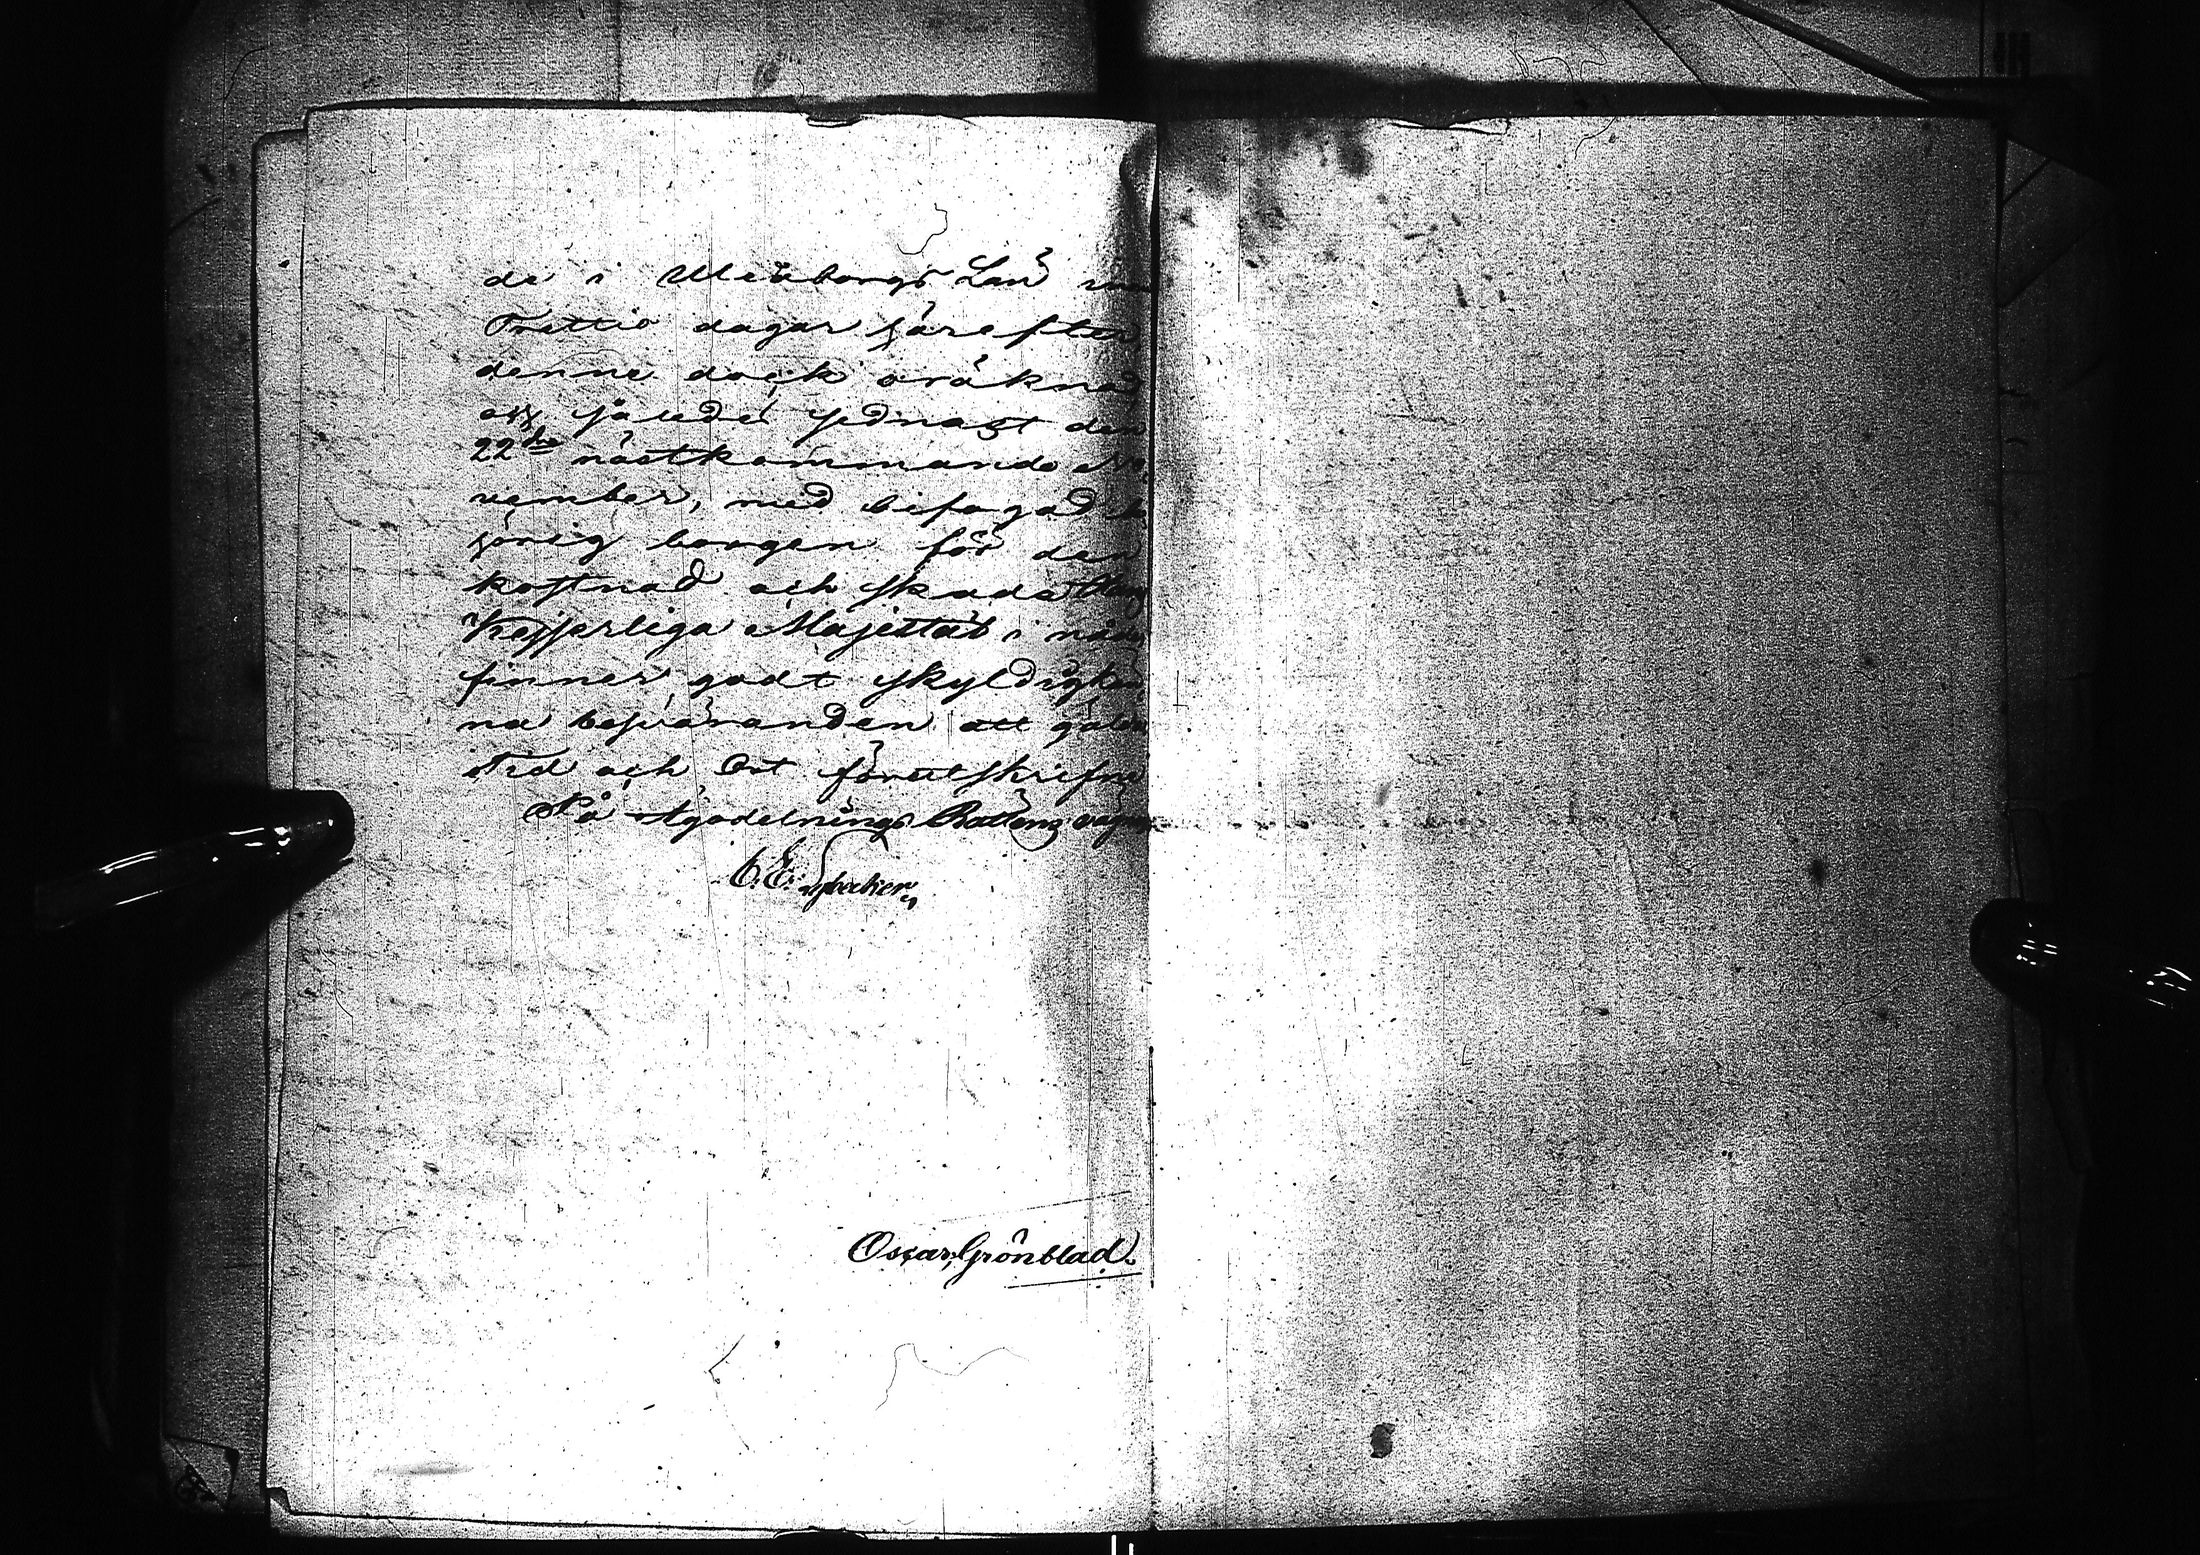 de i Uleåborgs Län in
Trettio dagar härefter
denne dock oräknad
och således sednast den
22dra nästkommande No
vember, med bifogad be
hörig borgen för den
kostnad och skada Hans
Kejserliga Majestät i nåder
finner godt skyldigkän
na besväranden att gälda
Tid och Ort förutskrifne
På Ägodelnings Rättens vägnar
C. E.
Oscar Grönblad.